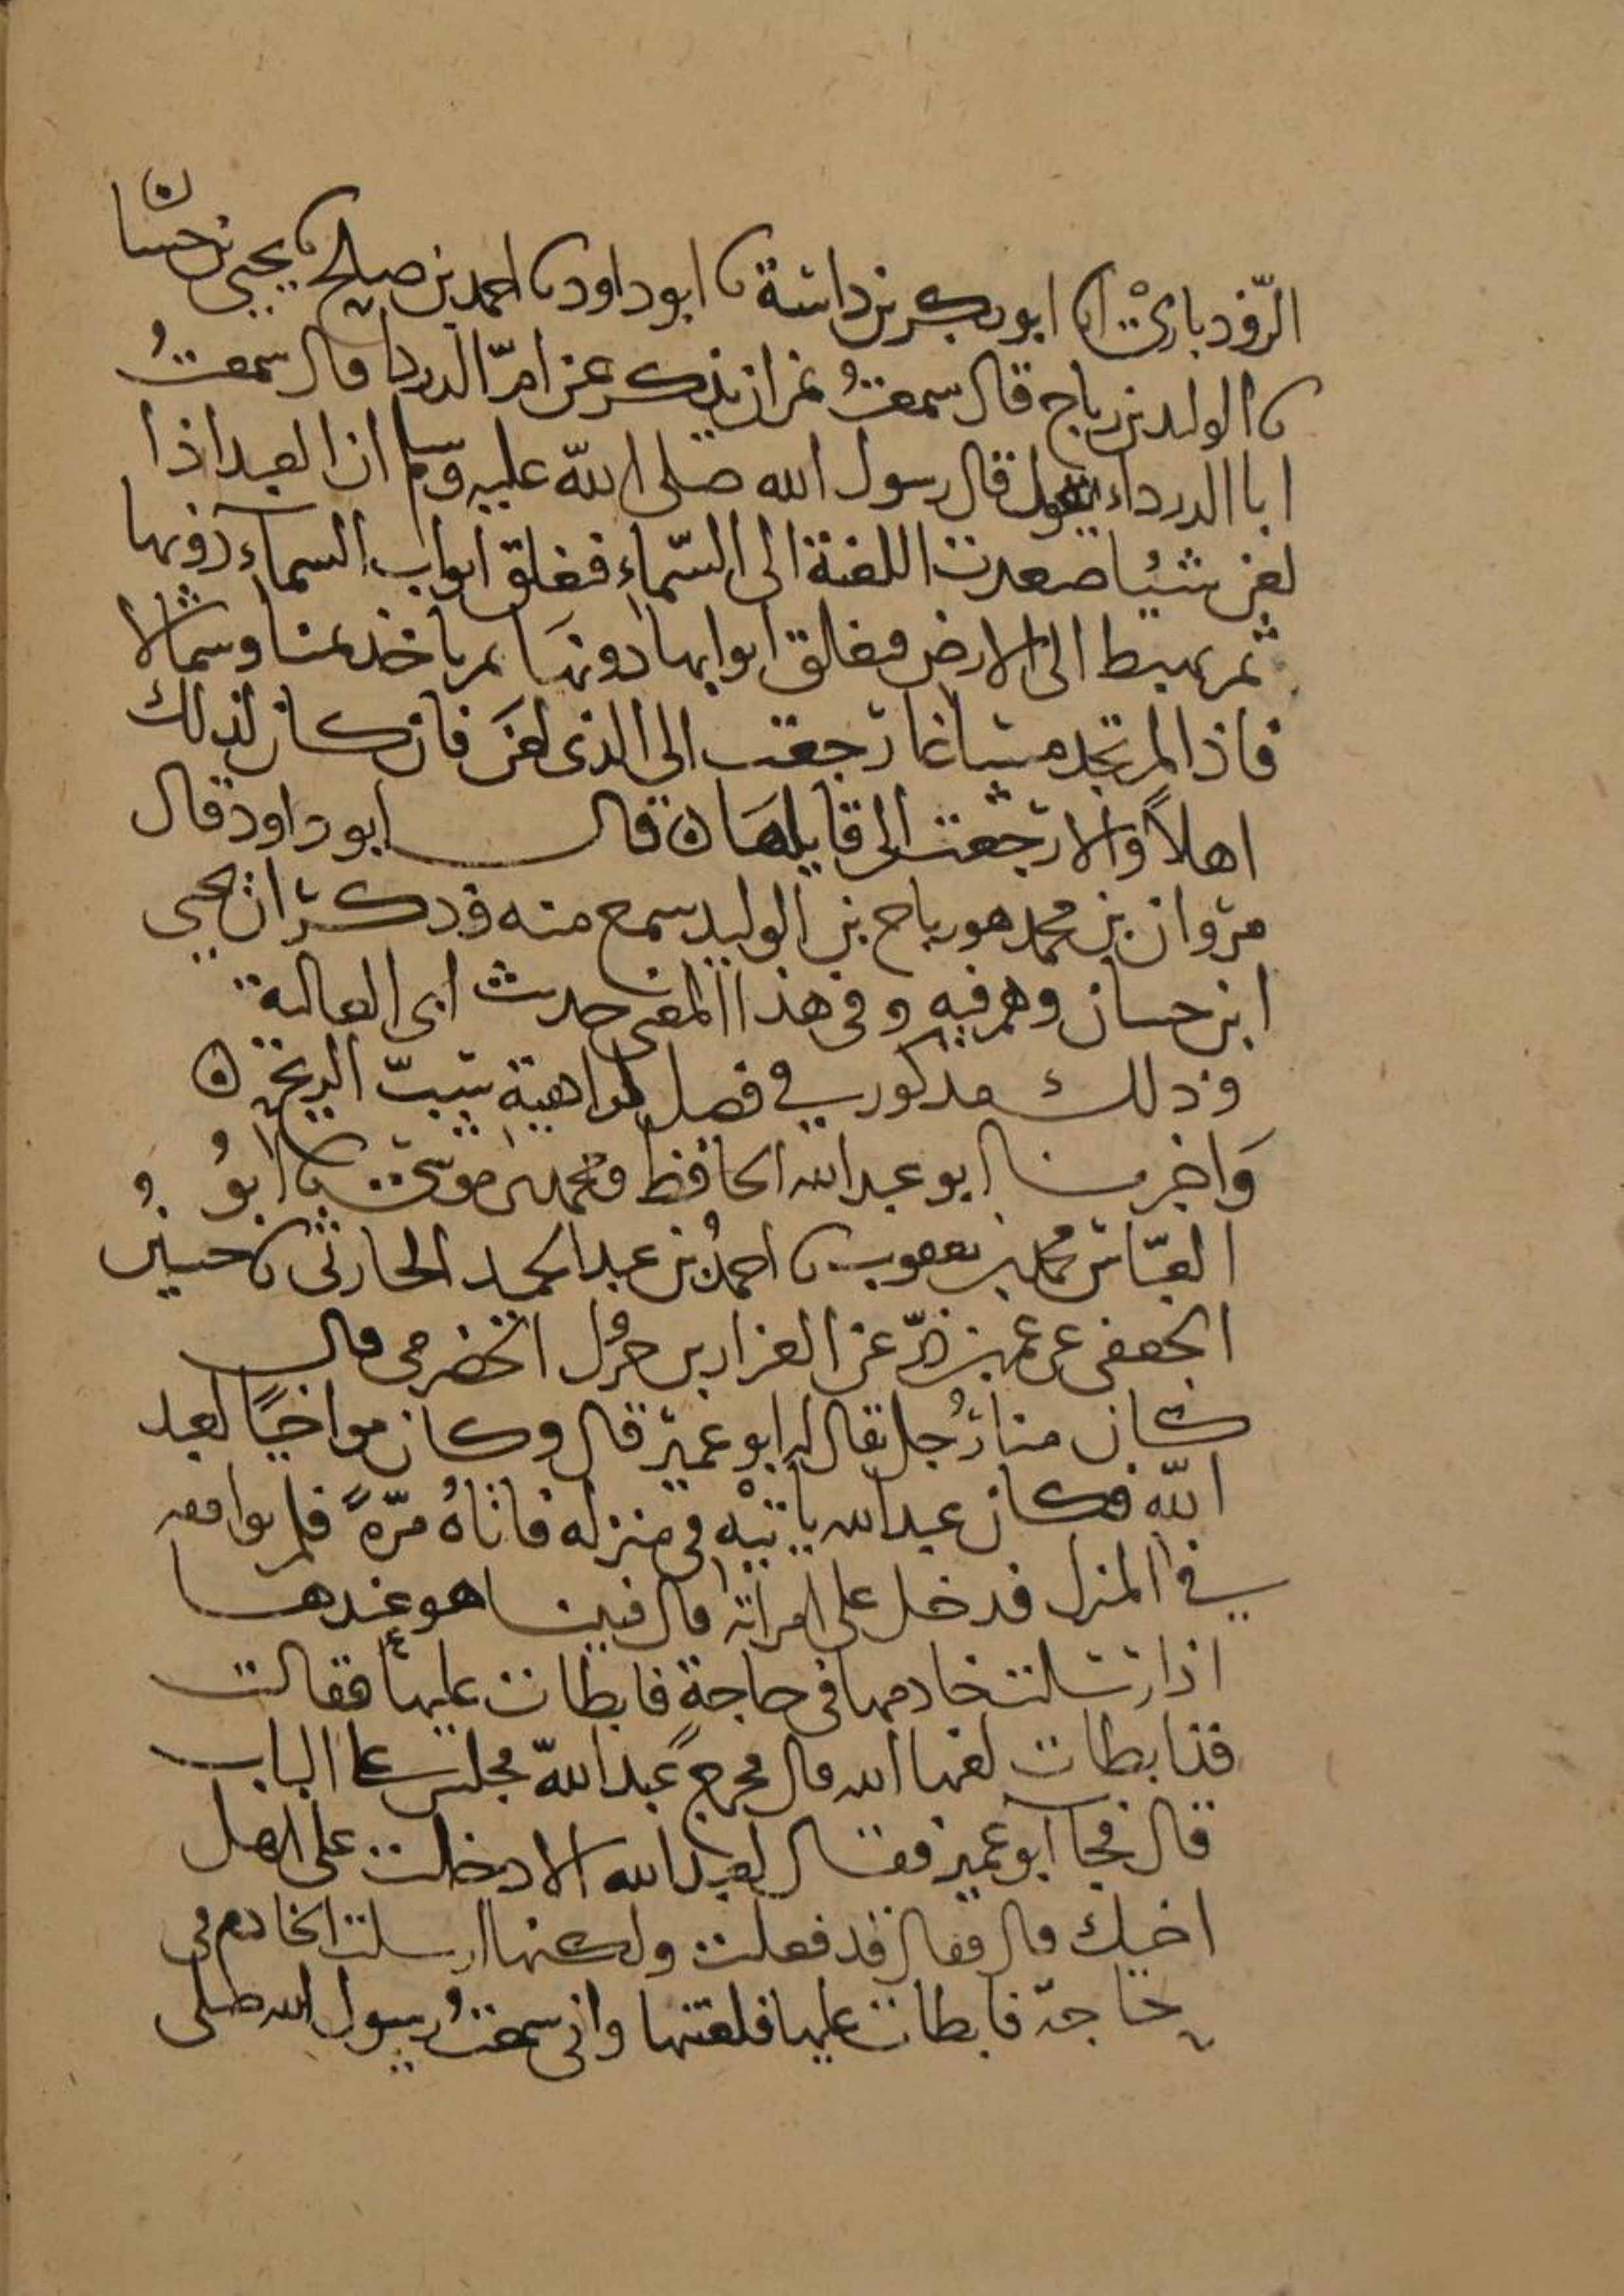 الرّوذبارىْ انا ابو بكر بن داسة نا ابو داود نا احمد بن صلح نا يحيى بن حسّان
نا الوليد بن رباح قال سمعتُ نمران يذكر عن امّ الدردا قال سمعتُ
ابا الدرداء يقول قال رسول الله صلى الله عليه وسلم ان العبد اذا
لعن شيئا صعدت اللعنة الى السّماء فتغلق ابواب السماء دونها
ثم تهبط الى الارض فتغلق ابوابها دونها ثم تاخذ يمينا وشمالا
فاذا لم تجد مساغا رجعت الى الذى لعن فان كان لذلك
اهلاً والا رجعت الى قايلها ن قال ابو داود قال
مروان بن محمد هو رباح بن الوليد سمع منه وذكر ان يحيى
ابن حسان وهم فيه وفى هذا المعنى حديث ابى العالية
وذلك مذكور في فصل كراهية سبّ الريح ن
وَاخبرنا ابو عبد الله الحافظ ومحمد بن موسى نا ابوُ
العبّاس محمد بن يعقوب نا احمدُ بن عبد الحميد الحارثى نا حسين
الجعفى عن عمر بن ذرّ عن العيزار بن جرول الحضرمى قال
كان منا رجُل يقال له ابو عمير قال وكان مواخيًا لعبد
اللّه فكان عبد الله ياتيْه فى منزله فاتاهُ مرّةً فلم يوافقه
في المنزل فدخل على امراته قال فبينا هو عندها
اذ ارسلت خادمها فى حاجةٍ فابطات عليها فقالت
قد ابطات لعنها الله قال فخرج عبد اللّه فجلس على الباب
قال فجا ابو عمير فقال لعبد الله الا دخلت على اهل
اخيك قال فقال قد فعلت ولكنها ارسلت الخادم فى
حاجة فابطات عليها فلعنتها وانى سمعتُ رسول الله صلى